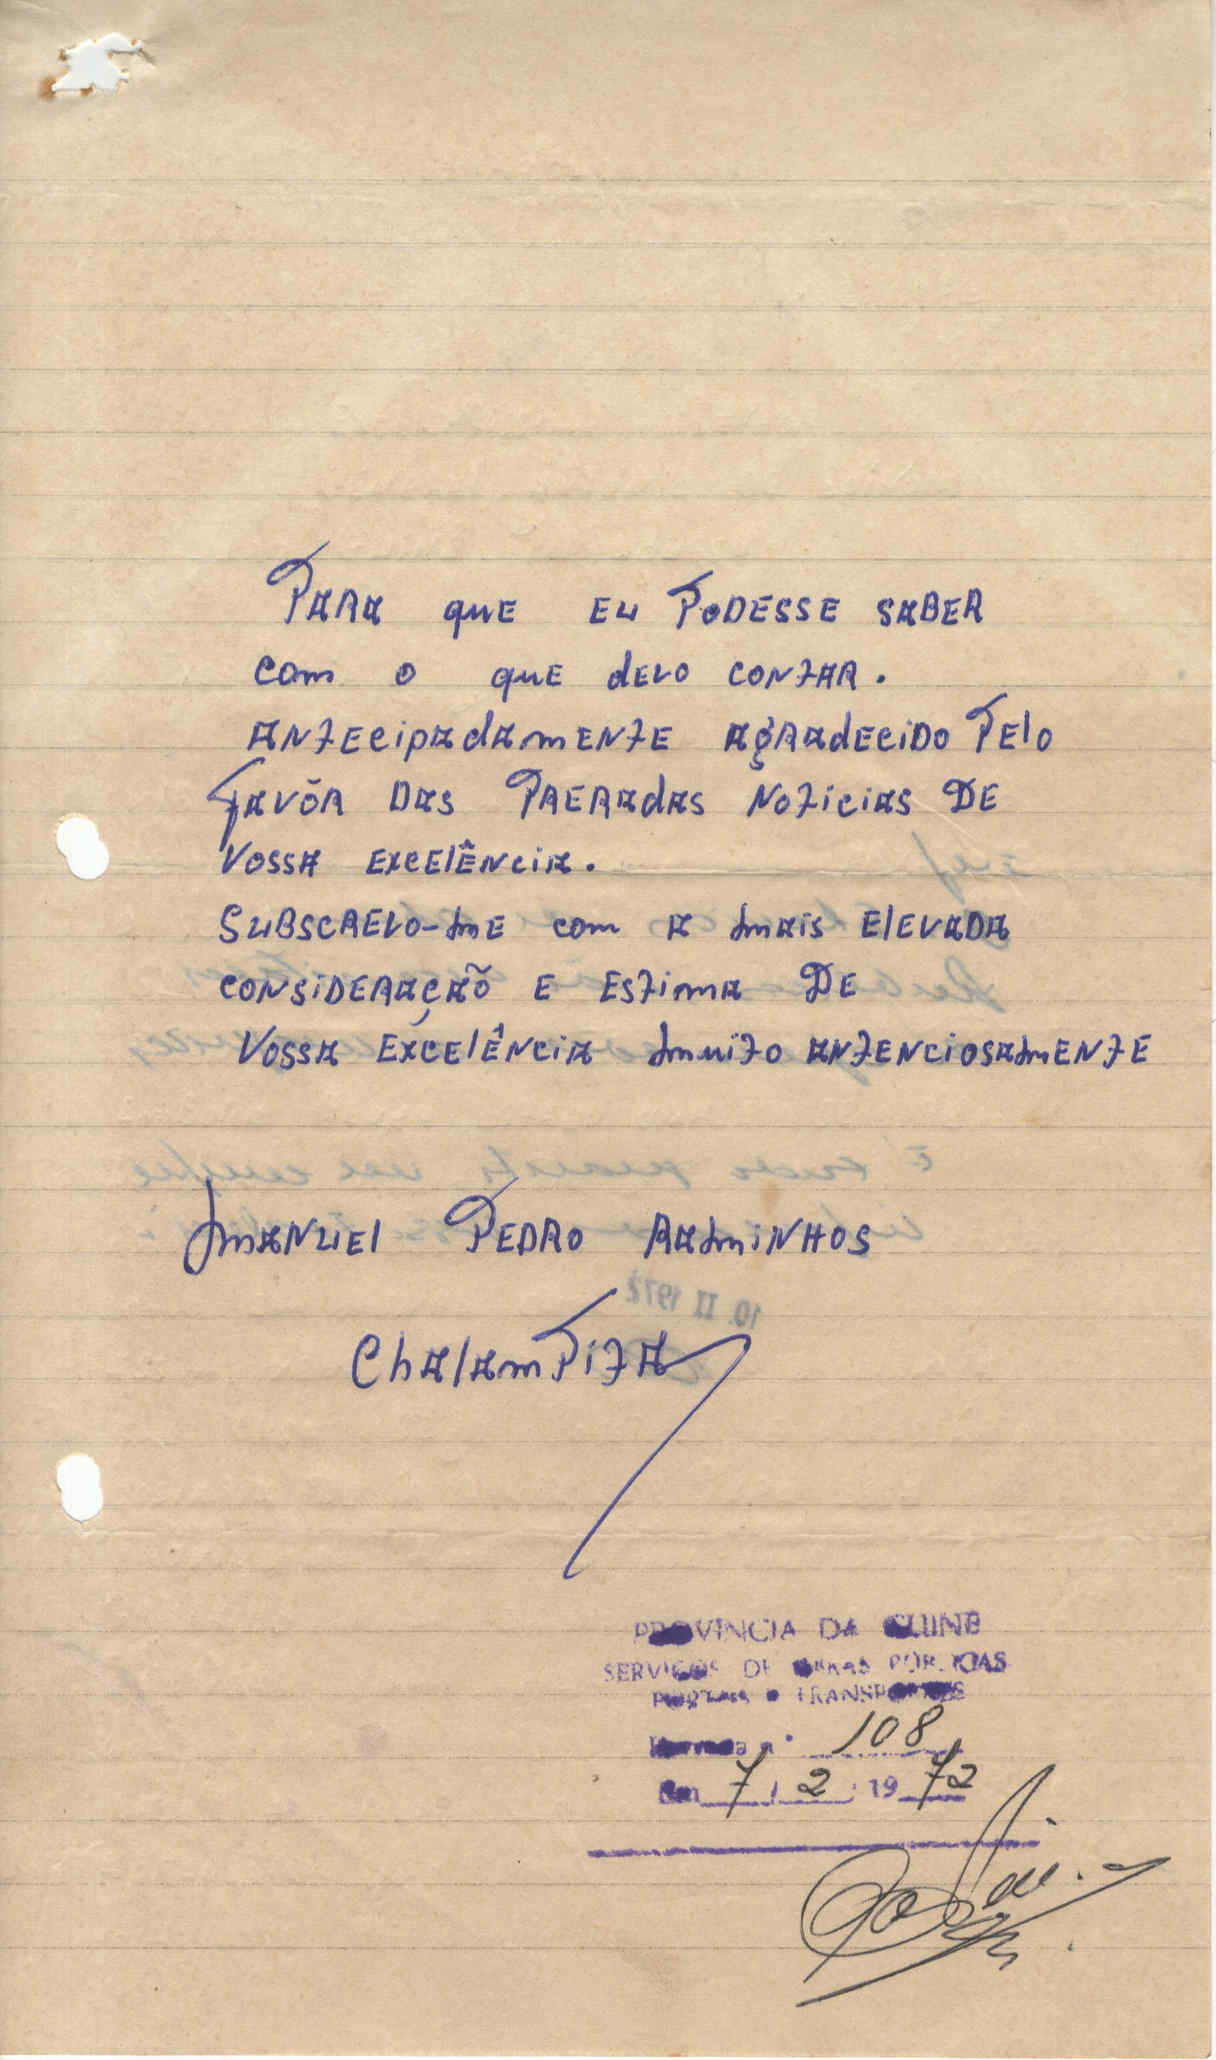 PARA que EU PODESSE SABER
com o que devo CONTAR.
ANTECIPADAMENTE AGRADECIDO PELO
FAVÔR DAS PRERADAS NOTICIAS DE
VOSSA EXCELÊNCIA.
SUBSCREVO-ME com A MAIS ELEVADA
CONSIDERAÇAÕ E ESTIMA DE
VOSSA EXCELÊNCIA MUITO ANTENCIOSAMENTE
MANUEL PEDRO RAMINHOS
ChALAMPITA
10. II 1972
PROVINCIA DA GUINE
SERVIÇOS DE OBRAS
PORTOS E TRANSPORTES
108
Em 7 / 2 / 19 72